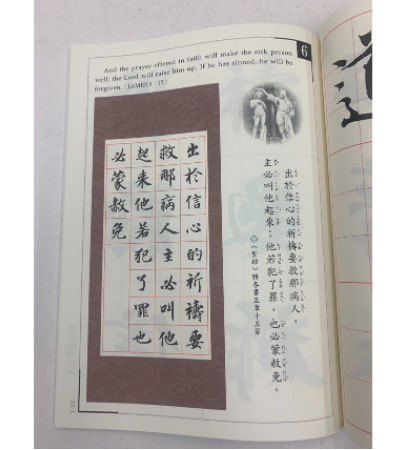 And the prayer offered in faith will make the sick person
well; the Lord will raise him up. If he has sinned, he will be
forgiven. (JAMES 5 : 15)
6
出於信心的祈禱要
救那病人主必叫他
起來他若犯了罪也
必蒙赦免
出於信心的祈禱要救那病人，
主必叫他起來；他若犯了罪，也必蒙赦免。
《聖經》雅各書五章十五節
道